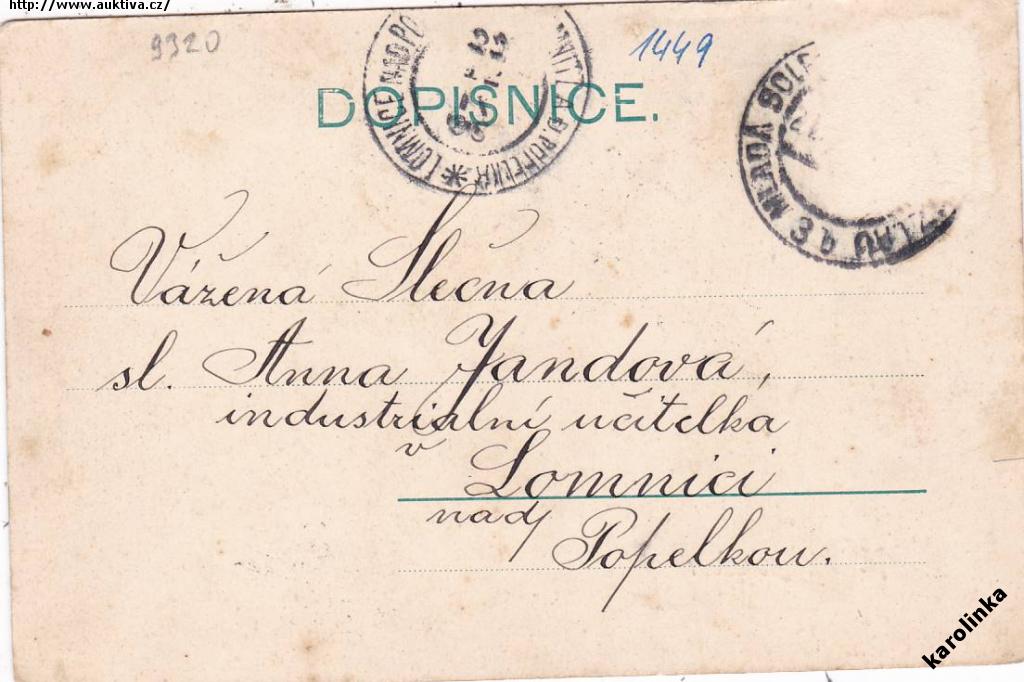 http://www.auktiva.cz/
9320
1449
DOPISNICE.
LOMNICE NAD PO
A.D. POPELKA
MLADÁ BOLE
Vážená Slečna
sl. Anna Jandová,
industrialní učitelka
v Lomnici
nad Popelkou.
karolinka